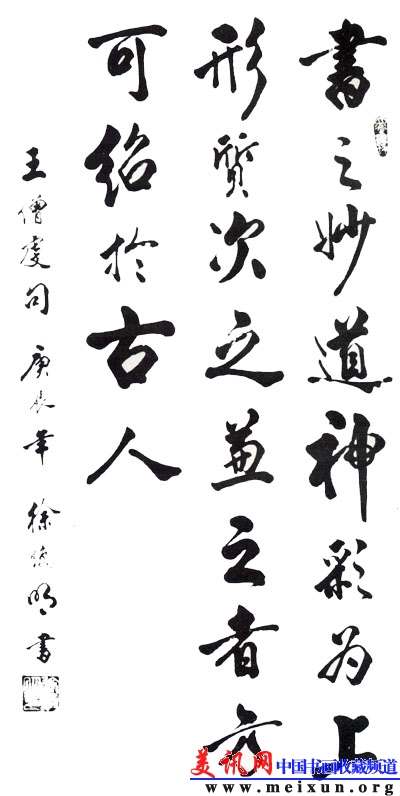 書之妙道神彩为上
形質次之兼之者方
可紹於古人
王僧虔句 庚辰年 徐明書
美讯网 中国书画收藏频道
www.meixun.org